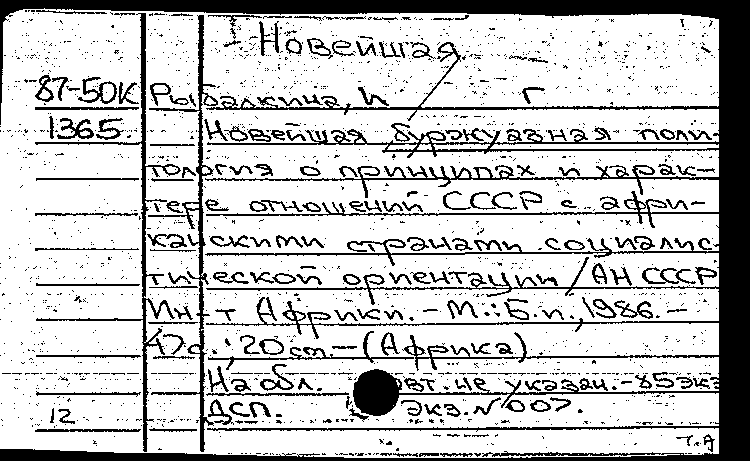 Новейшая
87-50К Рыбалкина, И Г
1365. Новейшая буржуазная поли-
тология о принципах и харак-
тере отношений СССР с афри-
канскими странами социалис-
тической ориентации / АН СССР
Ин-т Африки. - М.: Б.и., 1986. -
47с.; 20 см. - (Африка)
На обл. авт. не указан. - 85 экз
12 ДСП. Экз. N 007.
Т.А